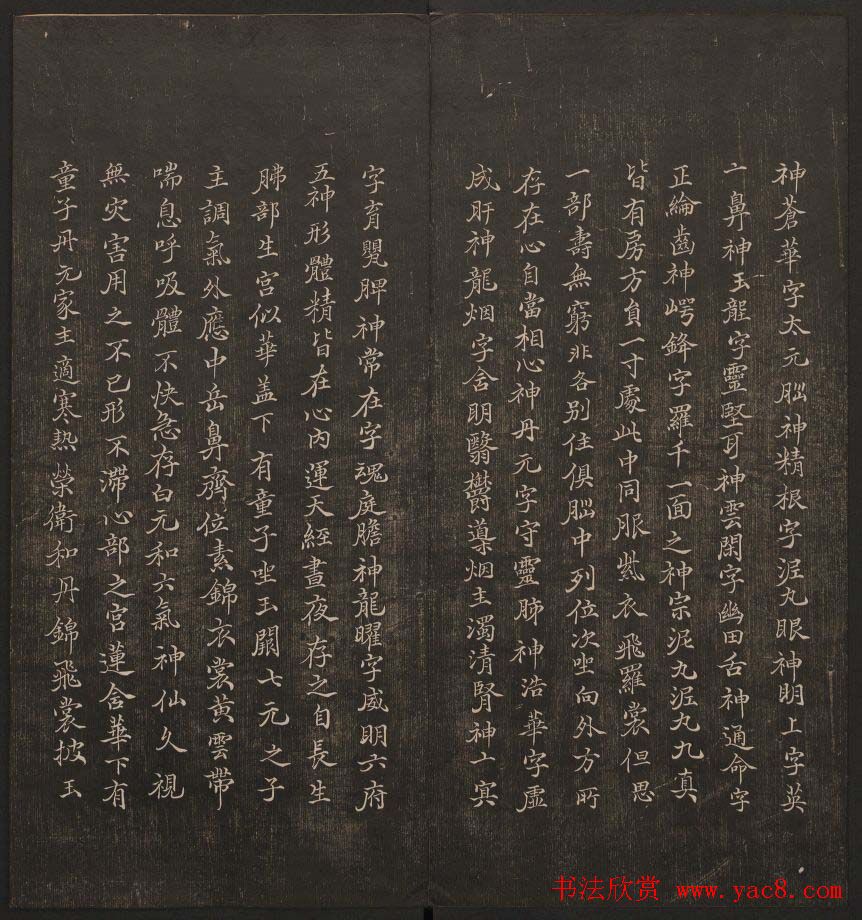 神蒼華字太元腦神精根字泥丸眼神明上字英
亠鼻神玉龍字靈堅耳神雲閑字幽田舌神通命字
正綸齒神崿鋒字羅千一面之神宗泥丸泥丸九真
皆有房方負一寸處此中同服紫衣飛羅裳但思
一部壽無窮非各別住俱腦中列位次坐向外方所
存在心自當相心神丹元字守靈肺神浩華字虛
成肝神龍烟字含明翳鬱導烟主濁清腎神亠冥
字育嬰脾神常在字魂庭膽神龍曜字威明六府
五神形體精皆在心內運天經晝夜存之自長生
肺部生宮似華盖下有童子坐玉闕七元之子
主調氣外應中岳鼻齊位素錦衣裳黃雲帶
喘息呼吸體不快急存白元和六氣神仙久視
無灾害用之不已形不滯心部之宮蓮含華下有
童子丹元家主適寒熱榮衛和丹錦飛裳披玉
书法欣赏 www.yac8.com